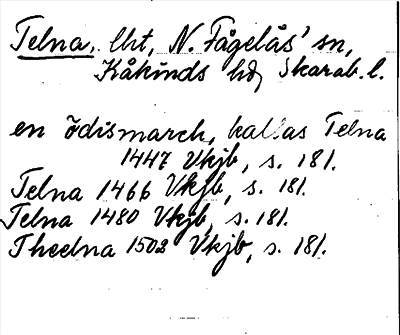 Telna, lht, N. Fågelås' sn,
Kåkinds hd, Skarab. l.
en ödismarch, kallas Telna
1447 Vkjb, s. 181.
Telna 1466 Vkjb, s. 181.
Telna 1480 Vkjb, s. 181.
Theelna 1502 Vkjb, s. 181.